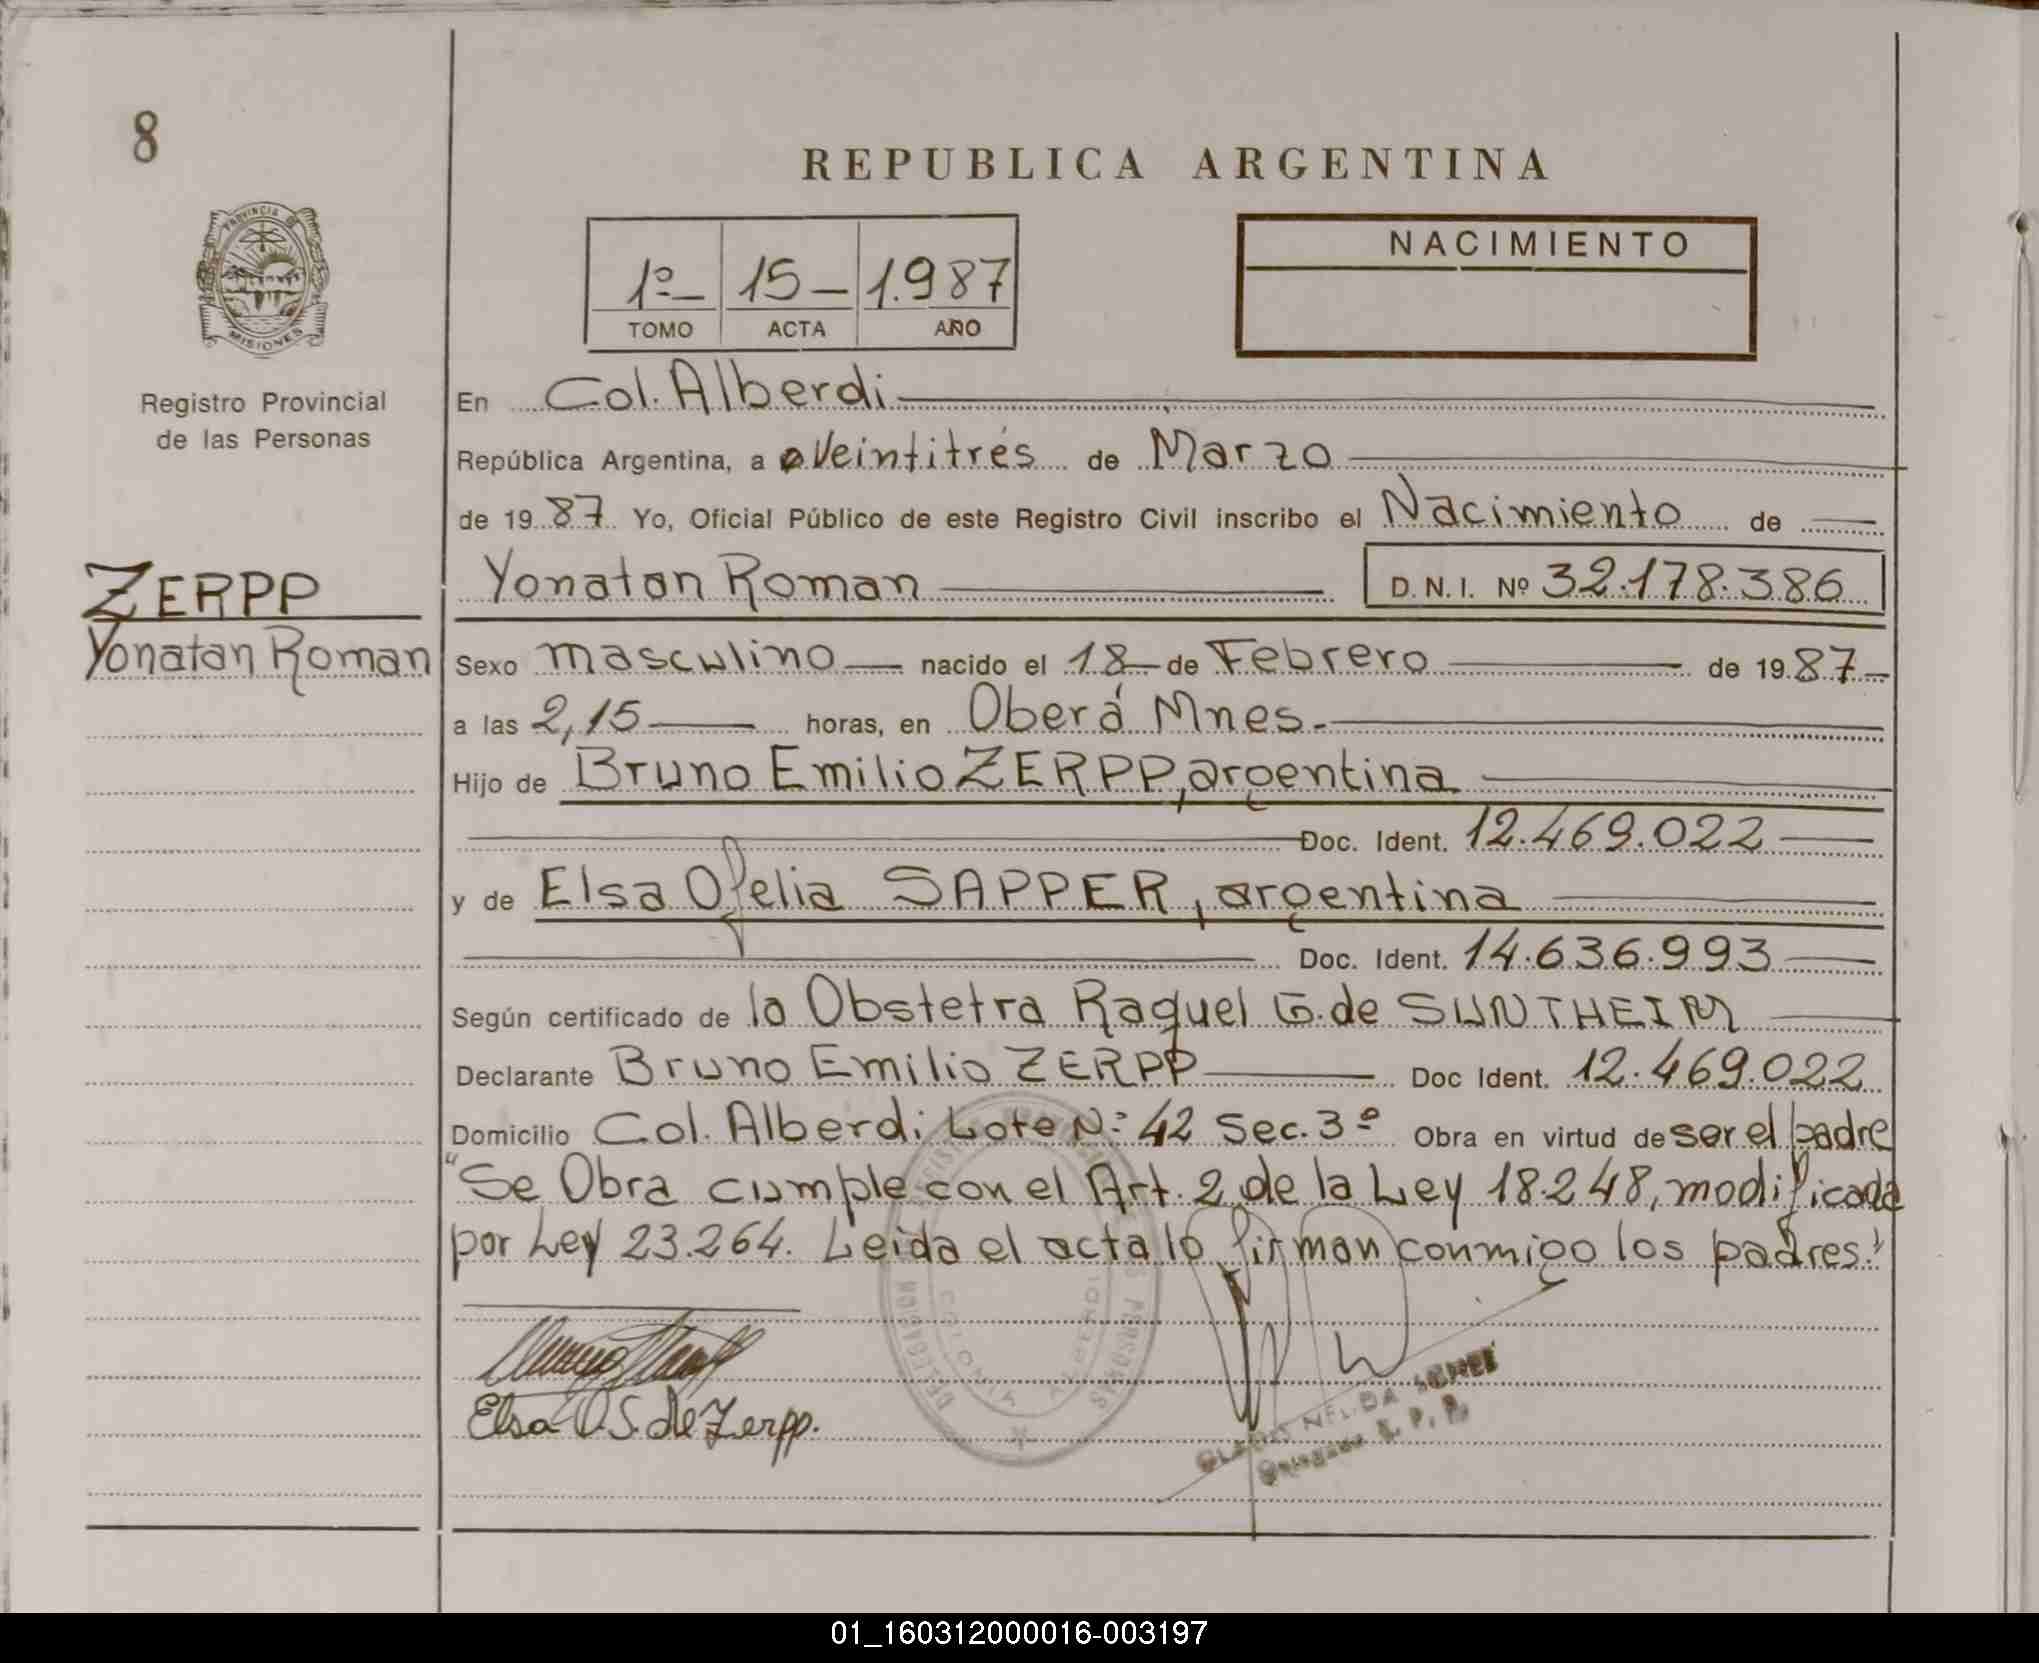 8
REPUBLICA ARGENTINA
PROVINCIA DE
MISIONES
Registro Provincial
de las Personas
1º- 15- 1.987
TOMO ACTA AÑO
NACIMIENTO
En Col. Alberdi
República Argentina, a Veintitrés de Marzo
de 1987 Yo, Oficial Público de este Registro Civil inscribo el Nacimiento de
Yonatan Roman D.N.I. Nº 32.178.386
ZERPP
Yonatan Roman
Sexo masculino nacido el 18 de Febrero de 1987
a las 2,15 horas, en Oberá Mnes.
Hijo de Bruno Emilio ZERPP, argentina
Doc. Ident. 12.469.022
y de Elsa Ofelia SAPPER, argentina
Doc. Ident. 14.636.993
Según certificado de la Obstetra Raquel G. de SUNTHEIM
Declarante Bruno Emilio ZERPP Doc Ident. 12.469.022
Domicilio Col. Alberdi Lote Nº 42 Sec. 3º Obra en virtud de ser el padre
"Se Obra cumple con el Art. 2 de la Ley 18.248, modificada
por Ley 23.264. Leida el acta lo firman conmigo los padres."
Elsa O. S. de Zerpp.
DELEGACION
COLONIA ALBERDI
PERSONAS
NELIDA
R. P. P.
01_160312000016-003197